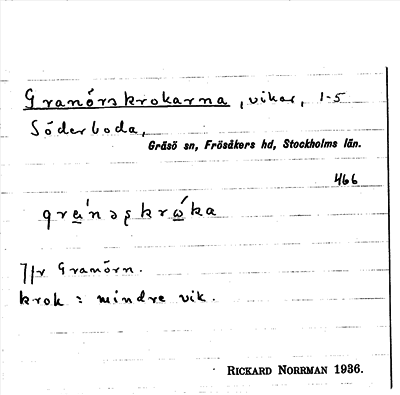 Granörskrokarna, vikar, 1-5
Söderboda,
Gräsö sn, Frösåkers hd, Stockholms län.
466
Jfr Granörn.
krok : mindre vik.
RICKARD NORRMAN 1936.